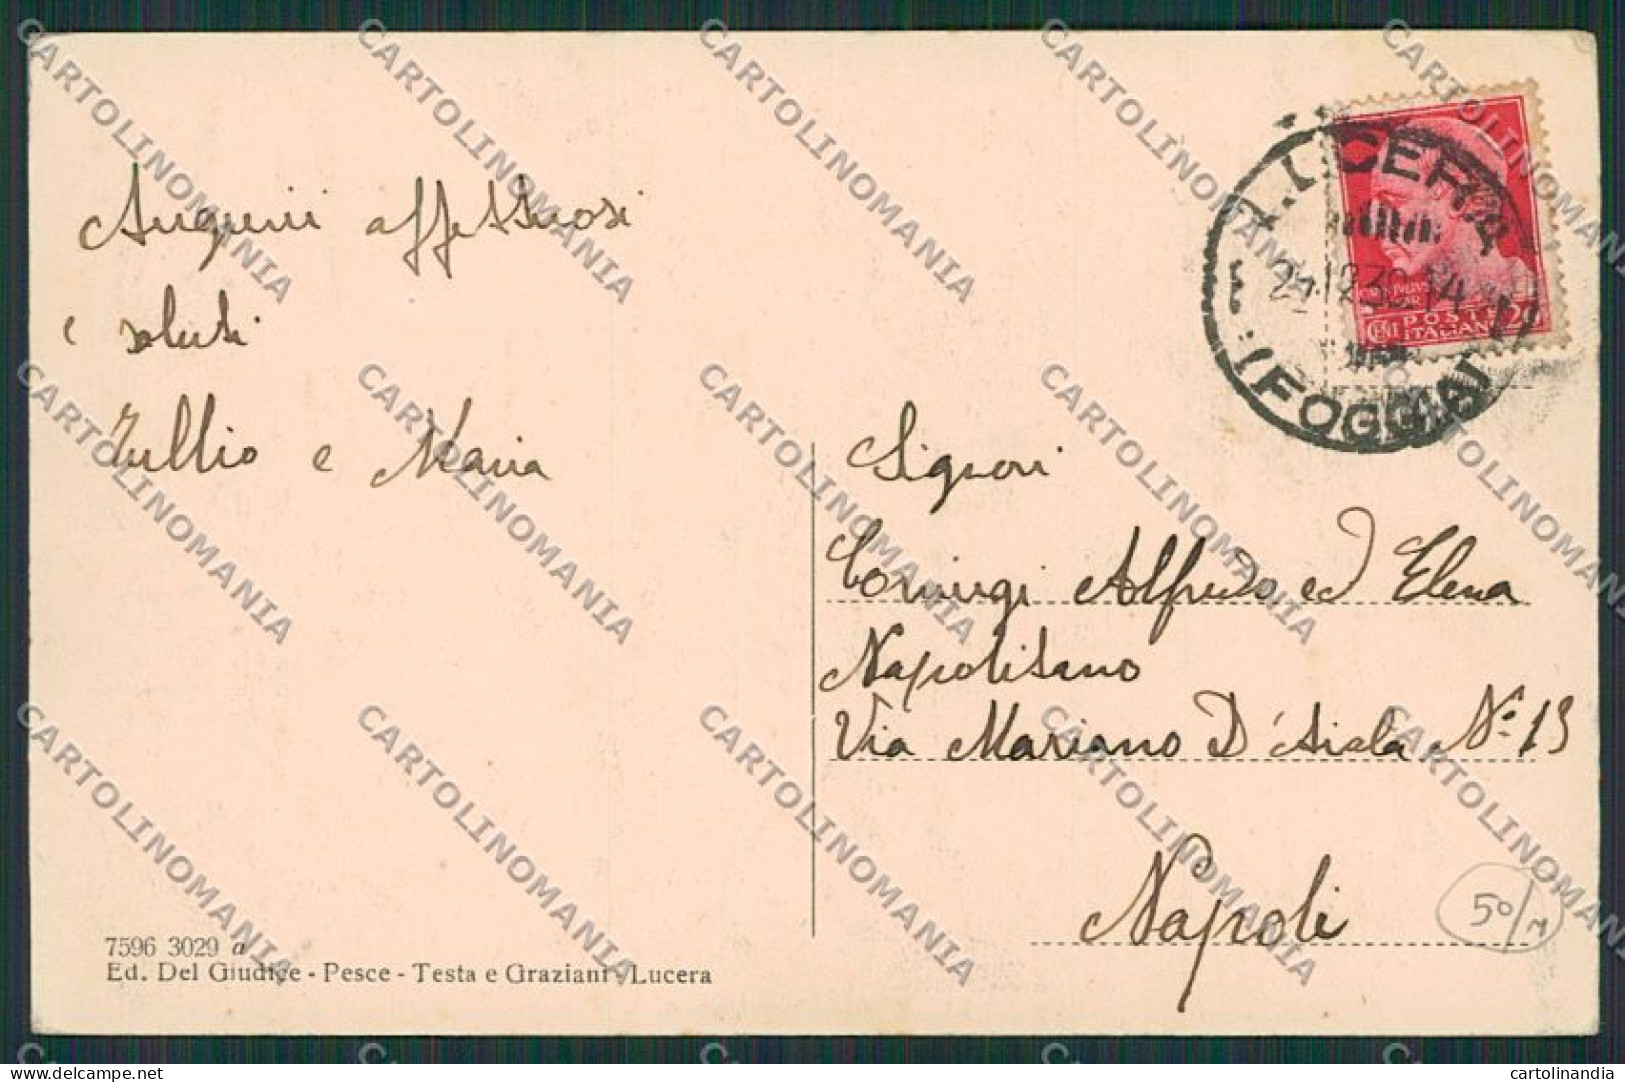 Auguri affettuosi
e saluti
Tullio e Maria
LUCERA
21.12.32.14
(FOGGIA)
POSTE
CENT ITALIANE 20
Signori
Coniugi Alfredo ed Elena
Napolitano
Via Mariano D'Aiala N.º 13
Napoli
50/
7596 3029 a
Ed. Del Giudice - Pesce - Testa e Graziani - Lucera
CARTOLINOMANIA
delcampe.net
cartolinandia